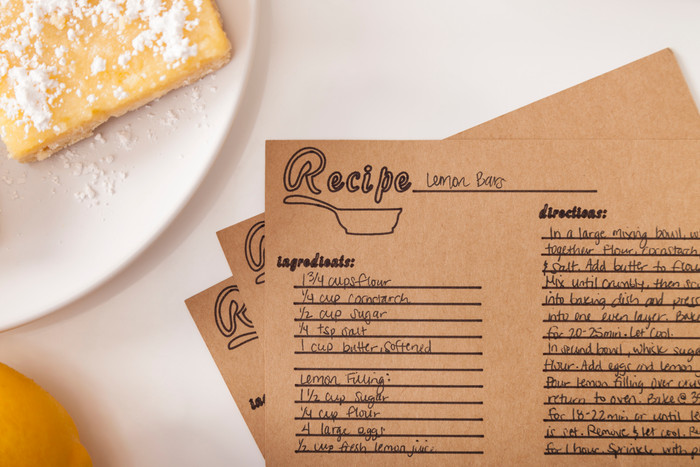 Recipe Lemon Bars
ingredients:
1 3/4 cups flour
1/4 cup cornstarch
1/2 cup sugar
1/4 tsp salt
1 cup butter, softened
Lemon Filling:
1 1/2 cup sugar
1/4 cup flour
4 large eggs
1/2 cup fresh lemon juice
directions:
In a large mixing bowl, w
together flour, cornstarch
& salt. Add butter to flou
Mix until crumbly, then sc
into baking dish and press
into one even layer. Bake
for 20-25min. Let cool.
In second bowl, whisk suga
flour. Add eggs and lemon
Pour lemon filling over crus
return to oven. Bake @ 35
for 18-22 min or until le
is set. Remove & let cool. Re
for 1 hour. Sprinkle with p
R
Re
in